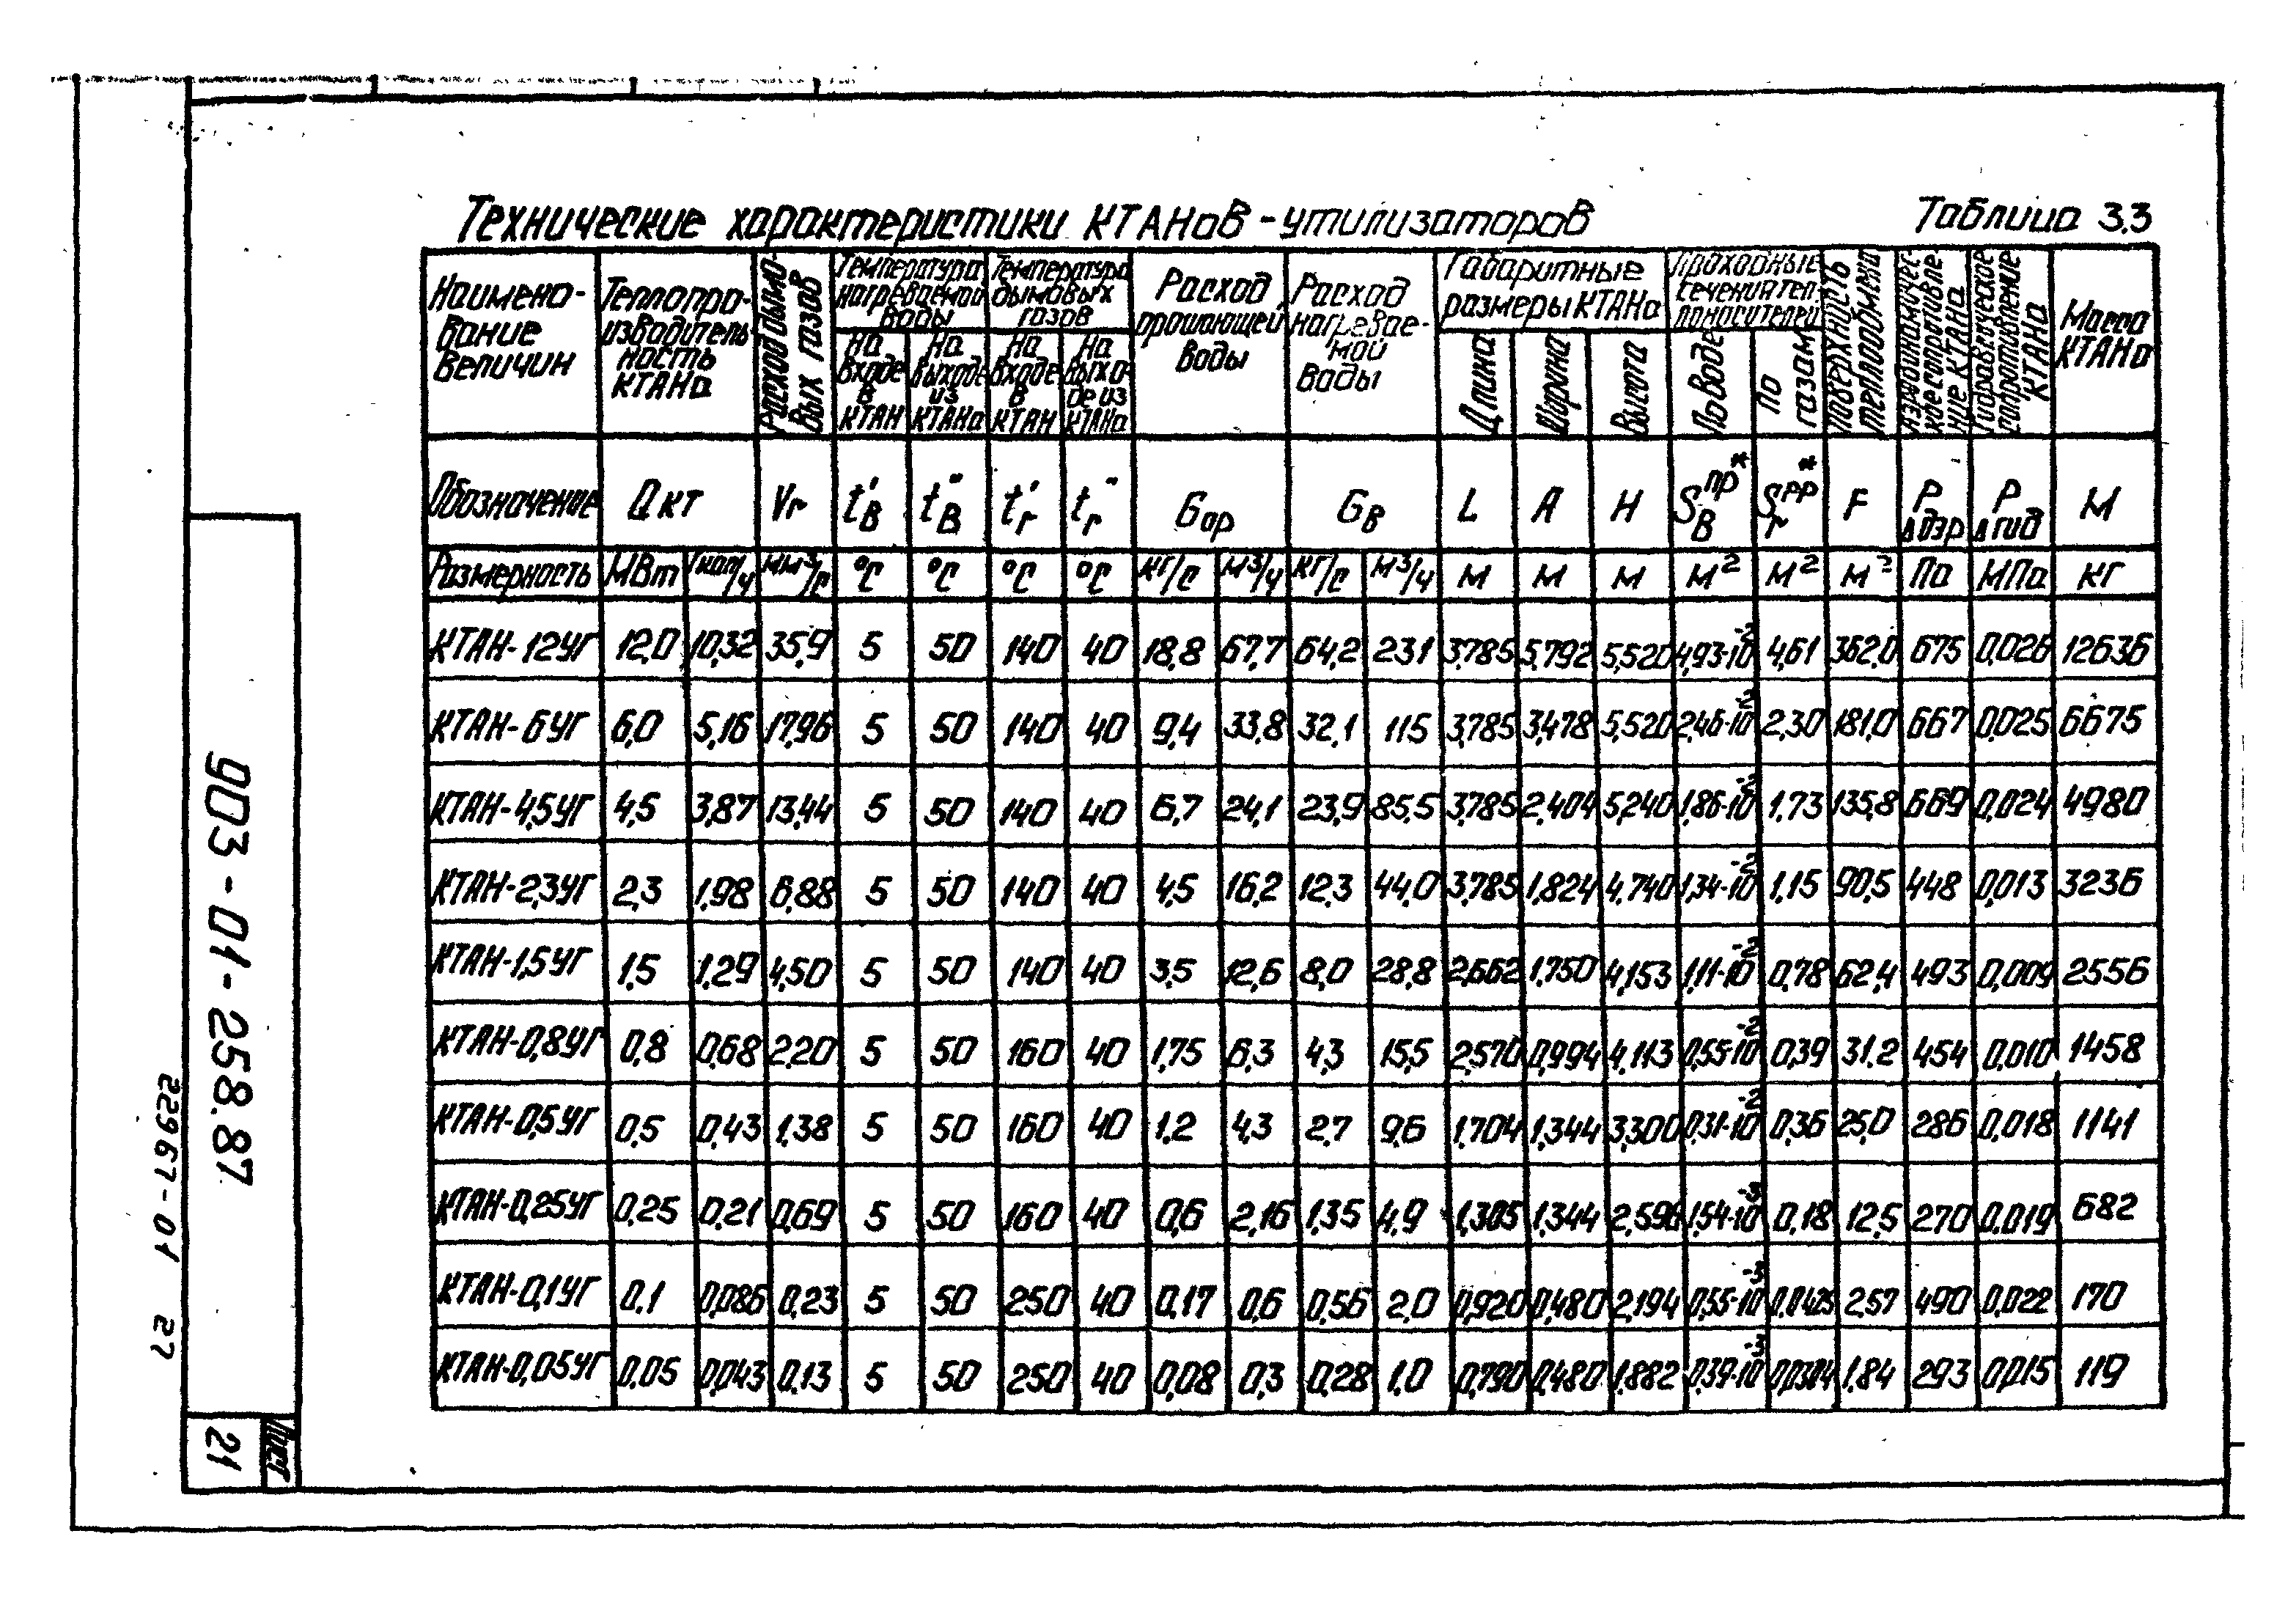 Технические характеристики КТАНов-утилизаторов Таблица 3.3
Наимено-вание величин | Теплопро-изводитель-ность КТАНа | Расход дымо-вых газов | Температура нагреваемой воды | Температура дымовых газов | Расход орошающей воды | Расход нагревае-мой воды | Габаритные размеры КТАНа | Проходные сечения теп-лоносителей | Поверхность теплообмена | Аэродинамичес-кое сопротивле-ние КТАНа | Гидравлическое сопротивление КТАНа | Масса КТАНа
На входе в КТАН | На выходе из КТАНа | На входе в КТАН | На выхо-де из КТАНа | Длина | Ширина | Высота | По воде | По газам
Обозначение | Qкт | Vг | t'в | t"в | t'г | t"г | Gор | Gв | L | A | H | Sв пр* | Sг пр* | F | Р∆аэр | Р∆гид | М
Размерность | МВт | Гкал/ч | нм³/с | °С | °С | °С | °С | кг/с | м³/ч | кг/с | м³/ч | м | м | м | м² | м² | м² | Па | МПа | кг
КТАН-12УГ | 12,0 | 10,32 | 35,9 | 5 | 50 | 140 | 40 | 18,8 | 67,7 | 64,2 | 231 | 3,785 | 5,792 | 5,520 | 4,93·10⁻² | 4,61 | 362,0 | 675 | 0,026 | 12636
КТАН-6УГ | 6,0 | 5,16 | 17,96 | 5 | 50 | 140 | 40 | 9,4 | 33,8 | 32,1 | 115 | 3,785 | 3,478 | 5,520 | 2,46·10⁻² | 2,30 | 181,0 | 667 | 0,025 | 6675
КТАН-4,5УГ | 4,5 | 3,87 | 13,44 | 5 | 50 | 140 | 40 | 6,7 | 24,1 | 23,9 | 85,5 | 3,785 | 2,404 | 5,240 | 1,86·10⁻² | 1,73 | 135,8 | 669 | 0,024 | 4980
КТАН-2,3УГ | 2,3 | 1,98 | 6,88 | 5 | 50 | 140 | 40 | 4,5 | 16,2 | 12,3 | 44,0 | 3,785 | 1,824 | 4,740 | 1,34·10⁻² | 1,15 | 90,5 | 448 | 0,013 | 3236
КТАН-1,5УГ | 1,5 | 1,29 | 4,50 | 5 | 50 | 140 | 40 | 3,5 | 12,6 | 8,0 | 28,8 | 2,662 | 1,750 | 4,153 | 1,11·10⁻² | 0,78 | 62,4 | 493 | 0,009 | 2556
КТАН-0,8УГ | 0,8 | 0,68 | 2,20 | 5 | 50 | 160 | 40 | 1,75 | 6,3 | 4,3 | 15,5 | 2,570 | 0,994 | 4,113 | 0,55·10⁻² | 0,39 | 31,2 | 454 | 0,010 | 1458
КТАН-0,5УГ | 0,5 | 0,43 | 1,38 | 5 | 50 | 160 | 40 | 1,2 | 4,3 | 2,7 | 9,6 | 1,704 | 1,344 | 3,300 | 0,31·10⁻² | 0,36 | 25,0 | 286 | 0,018 | 1141
КТАН-0,25УГ | 0,25 | 0,21 | 0,69 | 5 | 50 | 160 | 40 | 0,6 | 2,16 | 1,35 | 4,9 | 1,305 | 1,344 | 2,596 | 1,54·10⁻³ | 0,18 | 12,5 | 270 | 0,019 | 682
КТАН-0,1УГ | 0,1 | 0,086 | 0,23 | 5 | 50 | 250 | 40 | 0,17 | 0,6 | 0,56 | 2,0 | 0,920 | 0,480 | 2,194 | 0,55·10⁻³ | 0,0425 | 2,57 | 490 | 0,022 | 170
КТАН-0,05УГ | 0,05 | 0,043 | 0,13 | 5 | 50 | 250 | 40 | 0,08 | 0,3 | 0,28 | 1,0 | 0,790 | 0,480 | 1,882 | 0,39·10⁻³ | 0,0304 | 1,84 | 293 | 0,015 | 119
903-01-258.87
22967-01 27
Лист
21